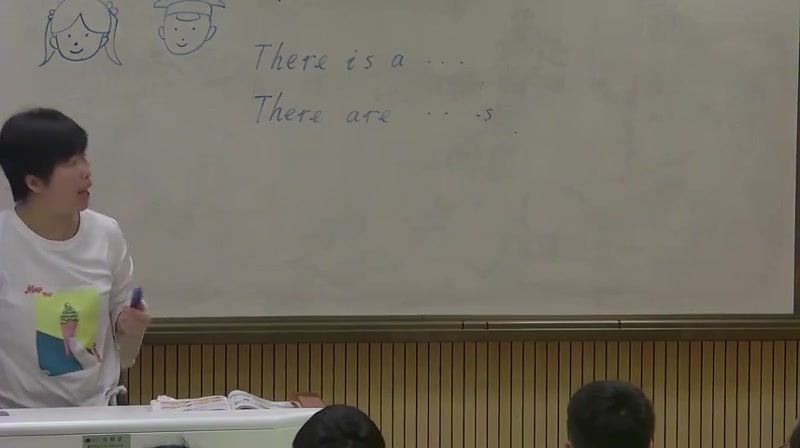 There is a ...
There are ... s